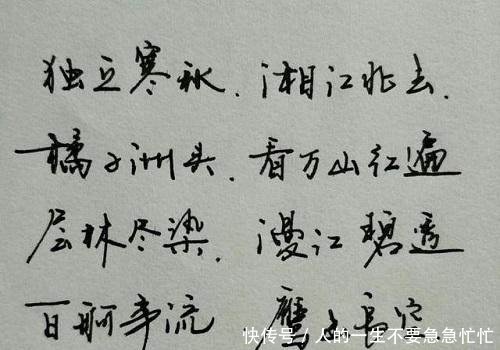 独立寒秋，湘江北去，
橘子洲头，看万山红遍
层林尽染，漫江碧透
百舸争流，鹰击长空
快传号 / 人的一生不要急急忙忙